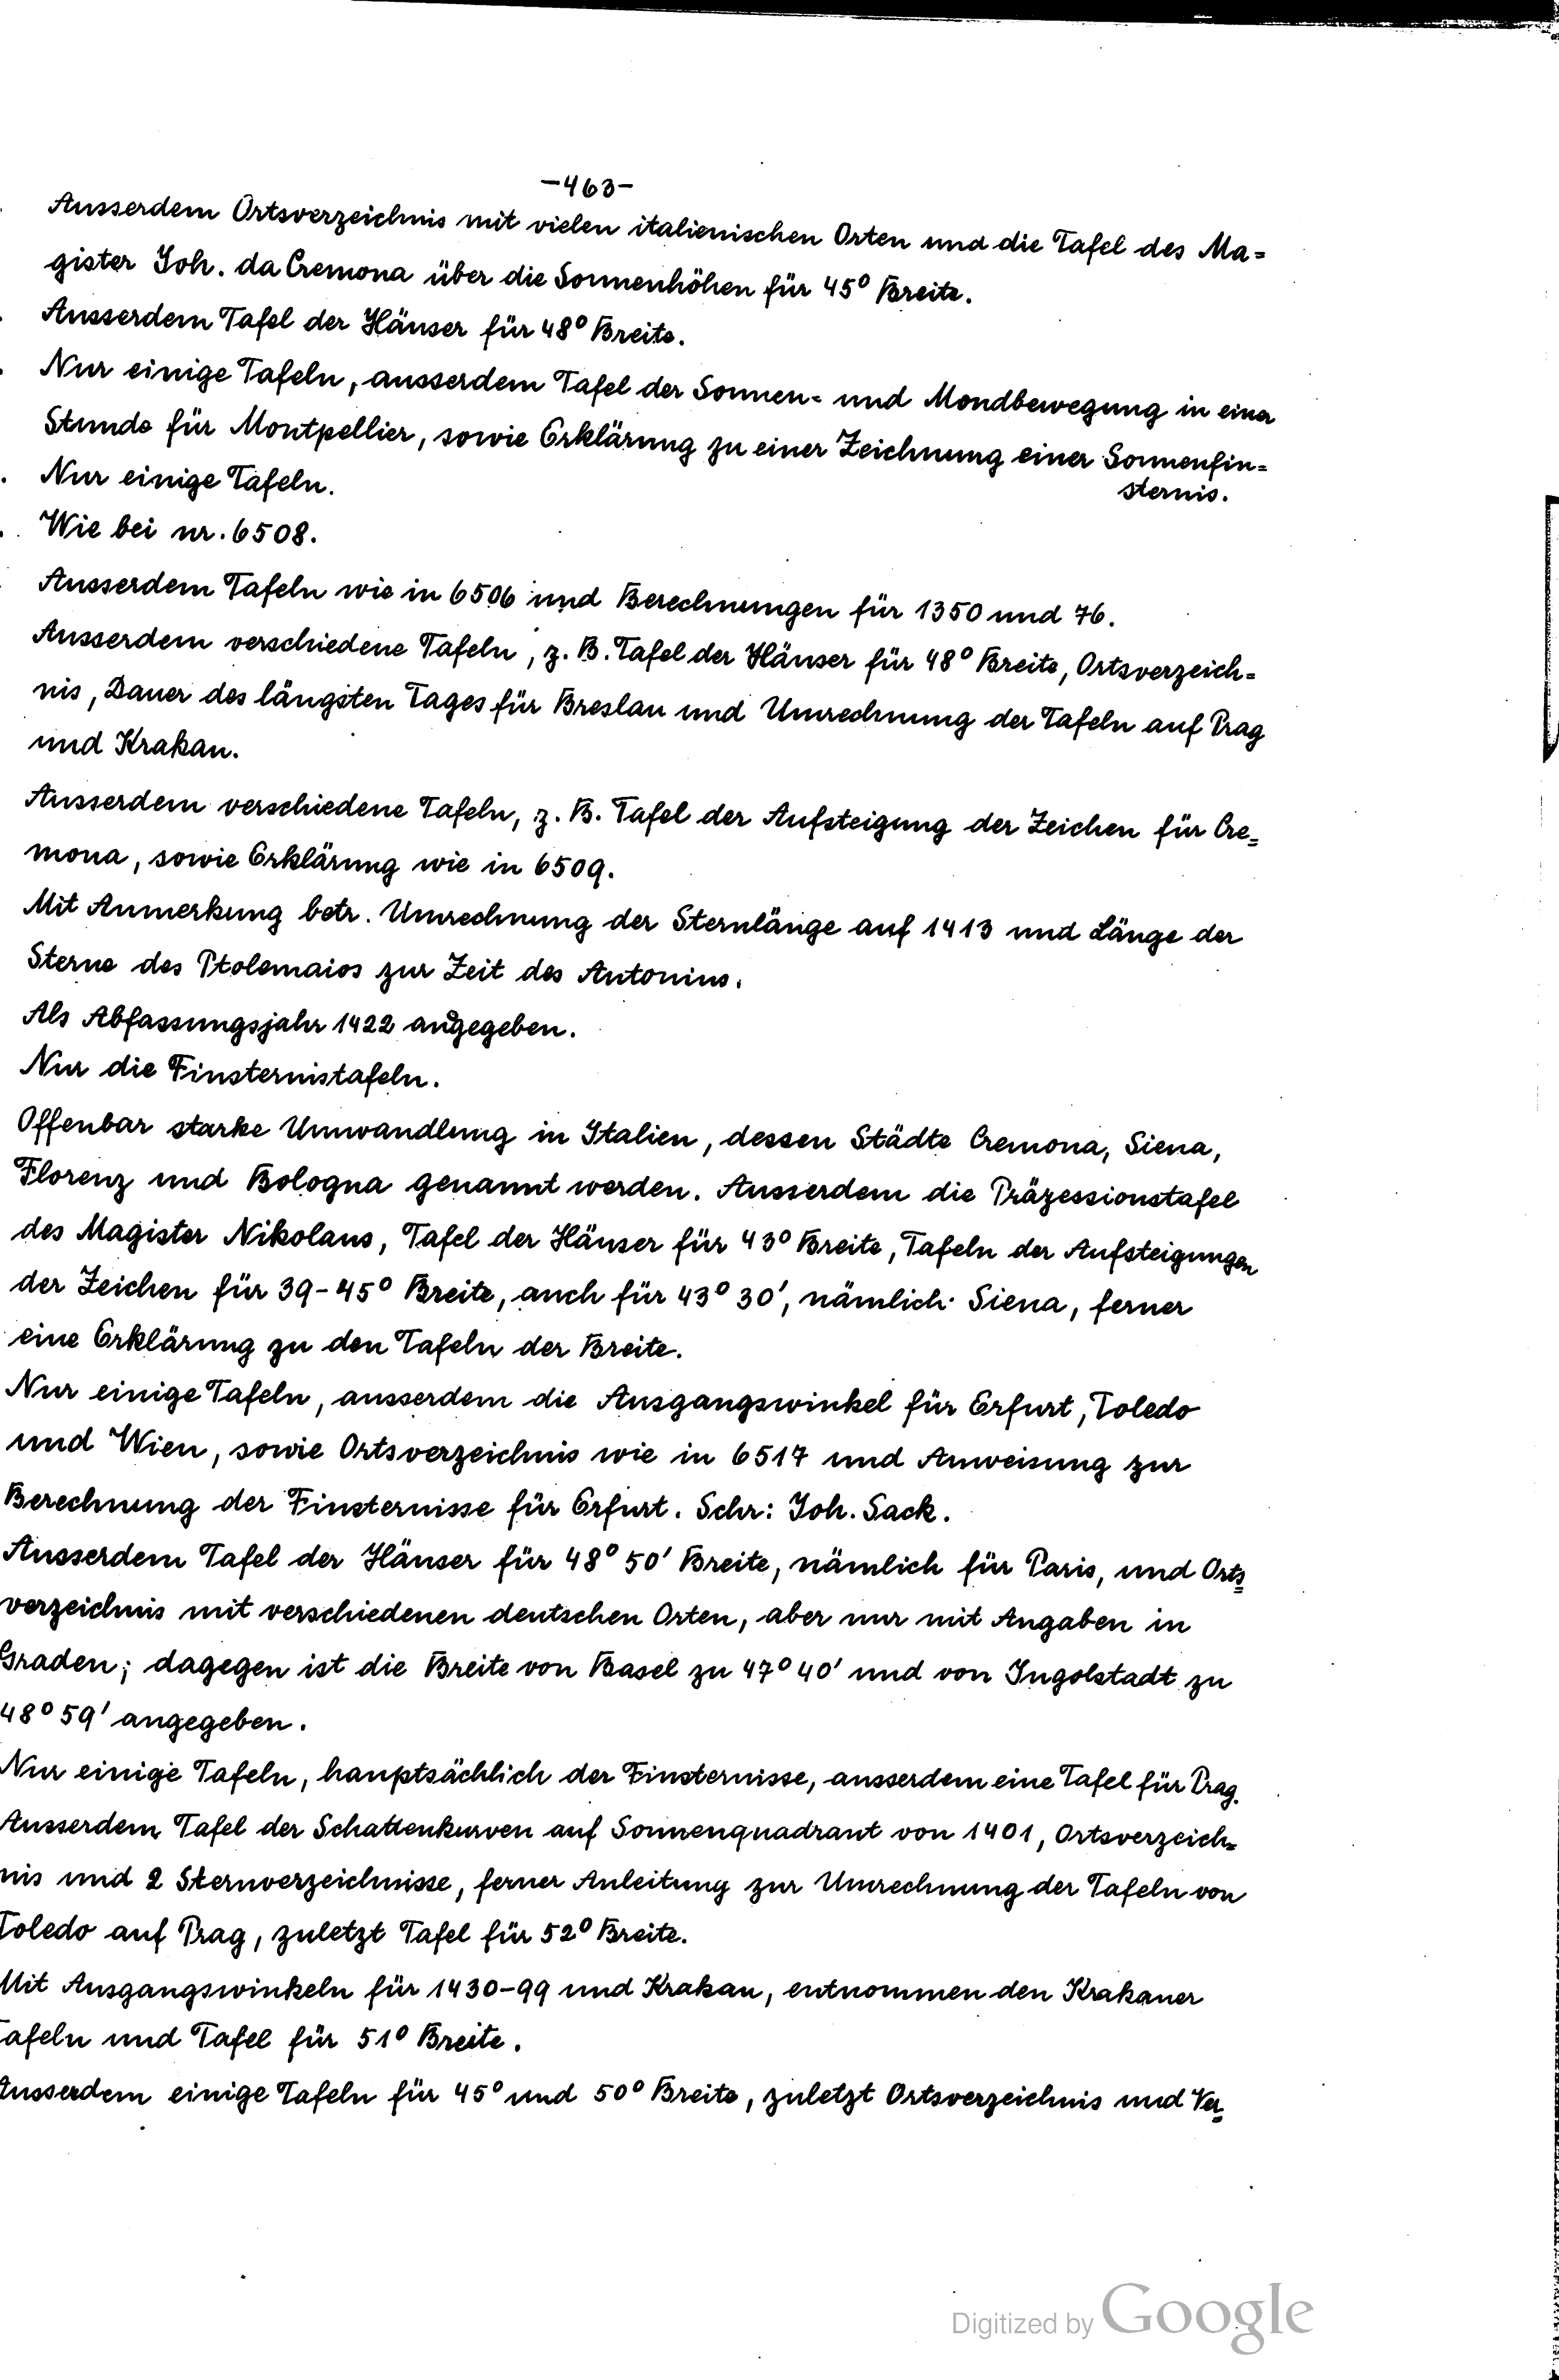 -463-
Ausserdem Ortsverzeichnis mit vielen italienischen Orten und die Tafel des Ma=
gister Joh. da Cremona über die Sonnenhöhen für 45° Breite.
Ausserdem Tafel der Häuser für 48° Breite.
Nur einige Tafeln, ausserdem Tafel der Sonnen= und Mondbewegung in einer
Stunde für Montpellier, sowie Erklärung zu einer Zeichnung einer Sonnenfin=
sternis.
Nur einige Tafeln.
Wie bei nr. 6508.
Ausserdem Tafeln wie in 6506 und Berechnungen für 1350 und 76.
Ausserdem verschiedene Tafeln, z. B. Tafel der Häuser für 48° Breite, Ortsverzeich=
nis, Dauer des längsten Tages für Breslau und Umrechnung der Tafeln auf Prag
und Krakau.
Ausserdem verschiedene Tafeln, z. B. Tafel der Aufsteigung der Zeichen für Cre=
mona, sowie Erklärung wie in 6509.
Mit Anmerkung betr. Umrechnung der Sternlänge auf 1413 und Länge der
Sterne des Ptolemaios zur Zeit des Antonius.
Als Abfassungsjahr 1422 angegeben.
Nur die Finsternistafeln.
Offenbar starke Umwandlung in Italien, dessen Städte Cremona, Siena,
Florenz und Bologna genannt werden. Ausserdem die Präzessionstafel
des Magister Nikolaus, Tafel der Häuser für 43° Breite, Tafeln der Aufsteigungen
der Zeichen für 39-45° Breite, auch für 43° 30', nämlich Siena, ferner
eine Erklärung zu den Tafeln der Breite.
Nur einige Tafeln, ausserdem die Ausgangswinkel für Erfurt, Toledo
und Wien, sowie Ortsverzeichnis wie in 6517 und Anweisung zur
Berechnung der Finsternisse für Erfurt. Schr: Joh. Sack.
Ausserdem Tafel der Häuser für 48° 50' Breite, nämlich für Paris, und Orts=
verzeichnis mit verschiedenen deutschen Orten, aber nur mit Angaben in
Graden; dagegen ist die Breite von Basel zu 47° 40' und von Ingolstadt zu
48° 59' angegeben.
Nur einige Tafeln, hauptsächlich der Finsternisse, ausserdem eine Tafel für Prag.
Ausserdem Tafel der Schattenkurven auf Sonnenquadrant von 1401, Ortsverzeich=
nis und 2 Sternverzeichnisse, ferner Anleitung zur Umrechnung der Tafeln von
Toledo auf Prag, zuletzt Tafel für 52° Breite.
Mit Ausgangswinkeln für 1430-99 und Krakau, entnommen den Krakauer
afeln und Tafel für 51° Breite.
Ausserdem einige Tafeln für 45° und 50° Breite, zuletzt Ortsverzeichnis und Ver=
Digitized by Google